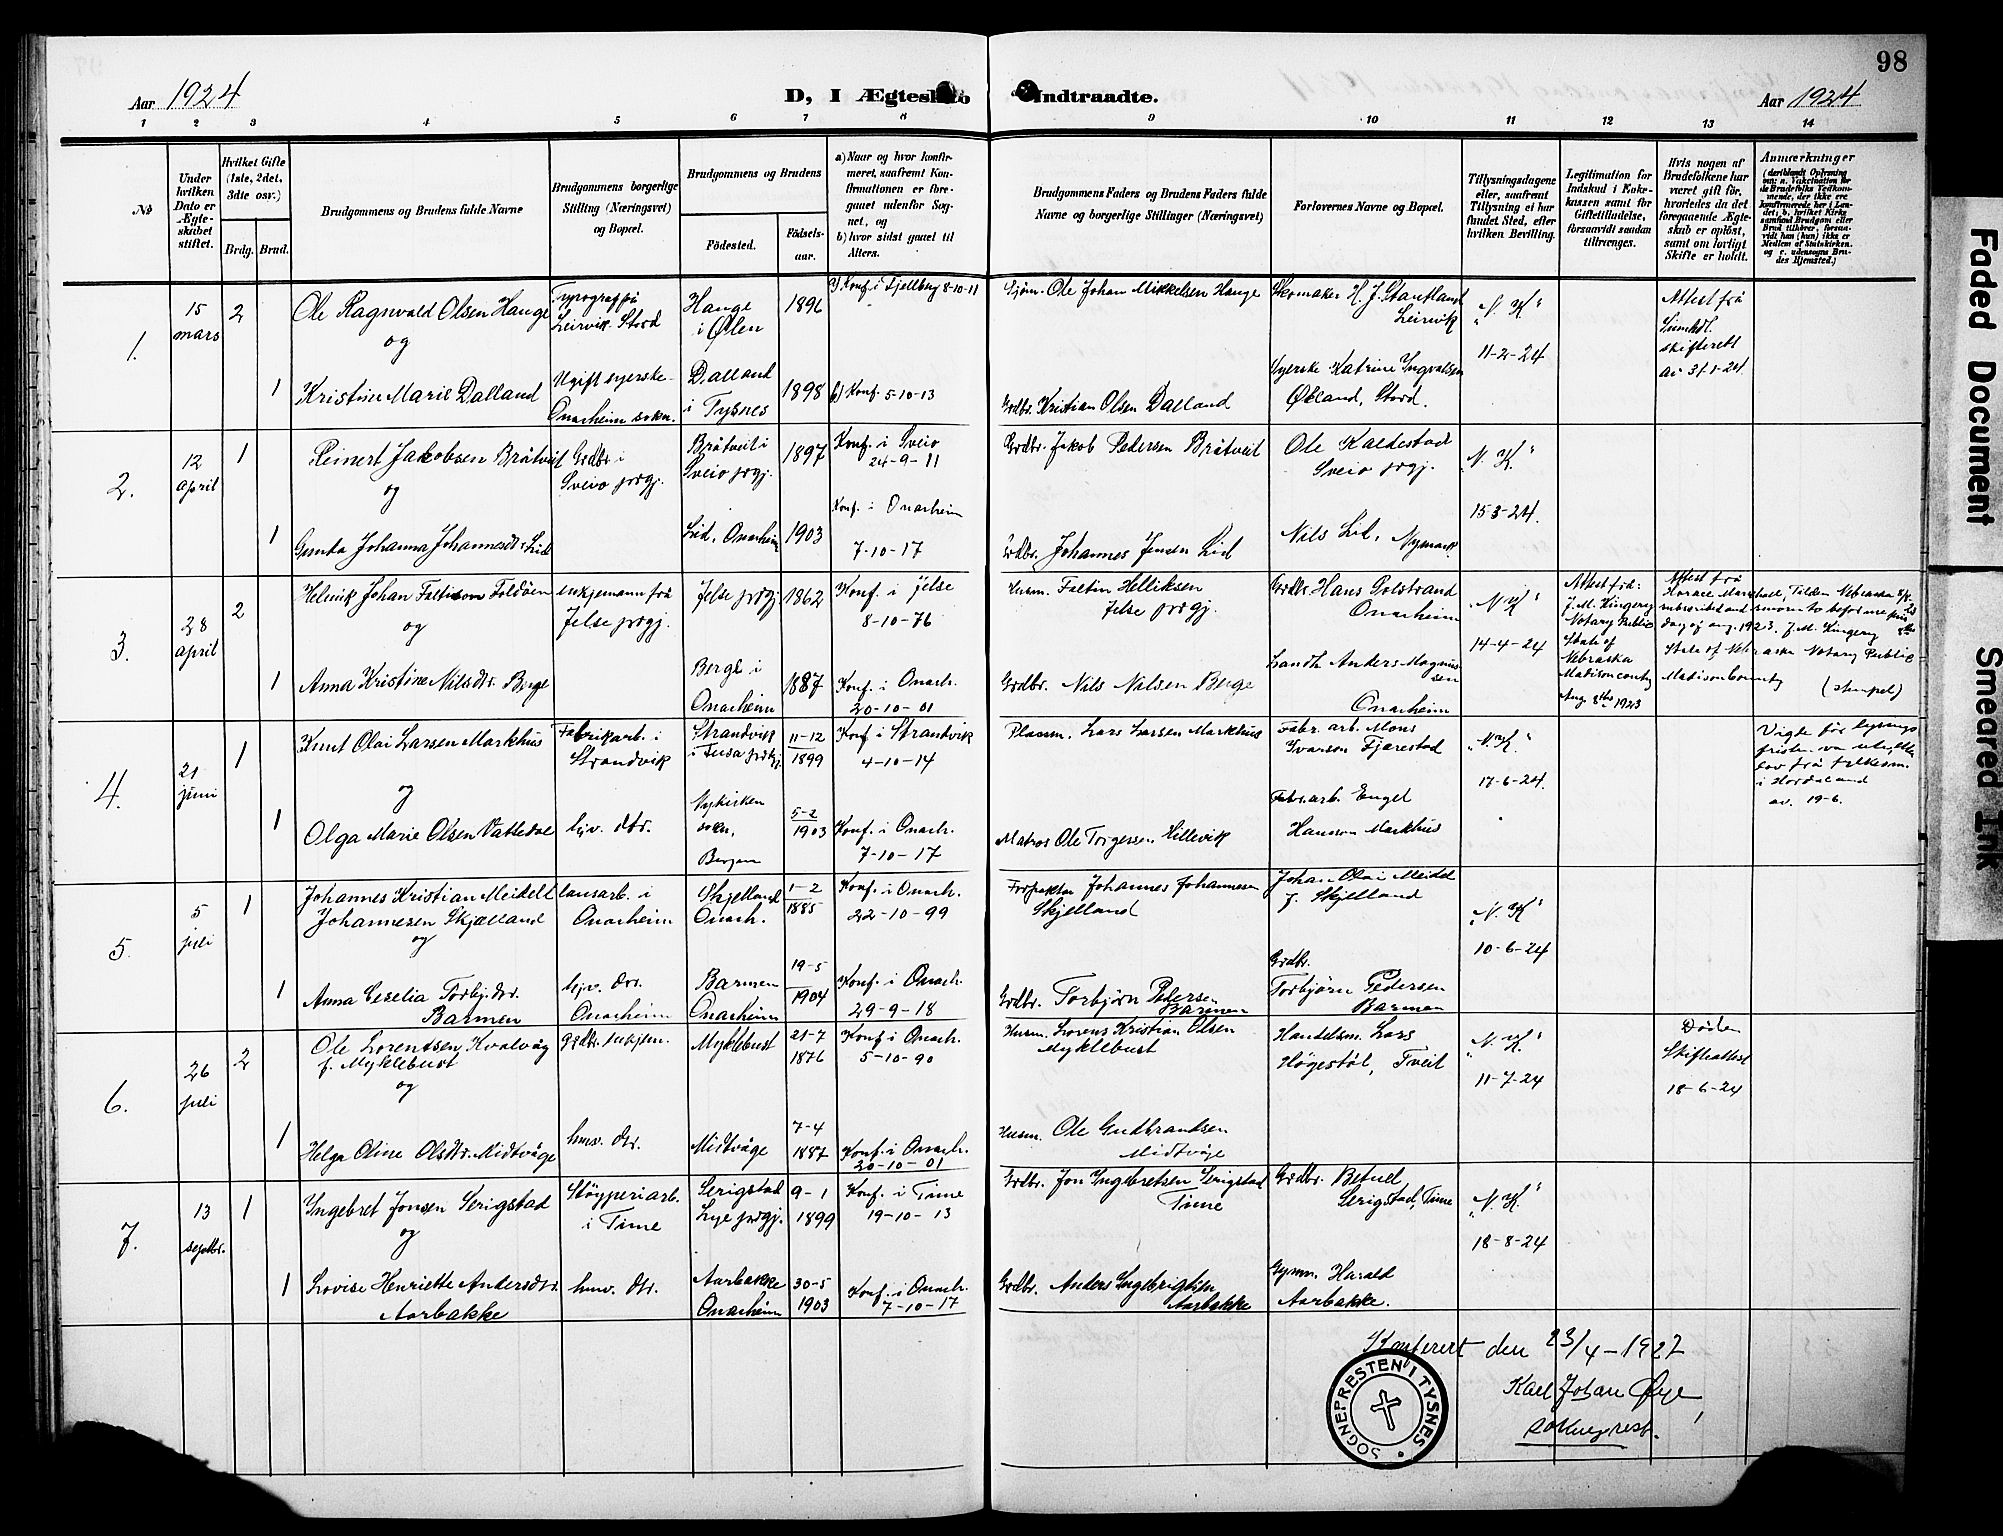 98
Aar 1924
D, I Ægteska
Indtraadte.
Aar 1924
1 2 3 4 5 6 7 8 9 10 11 12 13 14
No
Under hvilken Dato er Ægteskabet stiftet.
Hvilket Gifte (1ste, 2det, 3die osv.)
Brdg. Brud.
Brudgommens og Brudens fulde Navne
Brudgommens borgerlige Stilling (Næringsvei) og Bopæl.
Brudgommens og Brudens
Fødested.
Fødselsaar.
a) Naar og hvor konfirmeret, saafremt Konfirmationen er foregaaet udenfor Sognet, og
b) hvor sidst gaaet til Alters.
Brudgommens Faders og Brudens Faders fulde Navne og borgerlige Stillinger (Næringsvei)
Forlovernes Navne og Bopæl.
Tillysningsdagene eller, saafremt Tillysning ei har fundet Sted, efter hvilken Bevilling.
Legitimation for Indskud i Enkekassen samt for Giftetilladelse, forsaavidt saadan tiltrænges.
Hvis nogen af Brudefolkene har været gift før, hvorledes da det foregaaende Ægteskab er opløst, samt om lovligt Skifte er holdt.
Anmærkninger
1.
15 mars
2
Ole Ragnvald Olsen Hauge
og
1
Kristine Marie Dalland
Typograf på
Leirvik Stord
Ugift syerske
Onarheim sokn.
Hauge
i Ølen
1896
Dalland
i Tysnes
1898
a) Konf. i Fjellberg 8-10-11
b) Konf. 5-10-13
Sjøm. Ole Johan Mikkelsen Hauge
Grdbr. Kristian Olsen Dalland
Skomaker H. J. Stautland
Leirvik
Syerske Katrine Ingvaldsen
Økland, Stord.
"N. K"
11-2-24
Attest frå
Sunhdl.
skifterett
av 31-1-24
2.
12 april
1
Reinert Jakobsen Bråtveit
og
1
Gunda Johanna Johannesdtr. Lid
Grdbr. i
Sveio prgj.
Bråtveit i
Sveio prgj.
1897
Lid, Onarheim
1903
Konf. i Sveio
24-9-11
Konf. i Onarheim
7-10-17
Grdbr. Jakob Pedersen Bråtveit
Grdbr. Johannes Jensen Lid
Ole Kaldestad
Sveio prgj.
Nils Lid, Nymark.
"N. K"
15-3-24.
3.
28 april
2
Helmik Johan Foltison Foldöen
og
1
Anna Kristine Nilsdtr. Berge
enkjemann frå
Jelse prgj.
Jelse prgj.
1862
Berge i
Onarheim
1887
Konf. i Jelse
8-10-76
Konf. i Onarh.
20-10-01
Husm. Foltin Helliksen
Jelse prgj.
Grdbr. Nils Nilsen Berge
Grdbr. Hans Solstrand
Onarheim
Landh. Anders Magnussen
Onarheim
"N. K"
14-4-24
Attest frå:
J. M. Kingery
Notary Public
State of
Nebraska
Madison conty
Aug. 8ths 1923
Attest frå
Horace Marshall, Tilden Nebraska 8/8-23
subscribed and sworn to before me this 8ths
day of aug. 1923. J. M. Kingery
State of Nebraska Notary Public
Madison County (stempel)
4.
21 juni
1
Knut Olai Larsen Markhus
og
1
Olga Marie Olsen Vattedal
Fabrikarb. i
Strandvik
hjv. dtr.
Strandvik
i Fusa prgj.
11-12
1899
Nykirken
sokn,
Bergen
5-2
1903
Konf i Strandvik
4-10-14
Konf. i Onarh.
7-10-17
Plassm. Lars Larsen Markhus
Matros Ole Torgersen Hillevik
Fabr. arb. Mons
Ivarson Fjærestad
Fabr. arb. Engel
Hanson Markhus
"N. K."
17-6-24.
Vigde før lysings
i Hordaland
av. 19-6.
5.
5 juli
1
Johannes Kristian Meidell
Johannesen Skjælland
og
1
Anna Cecelia Torbj.dtr.
Barmen
lausarb. i
Onarheim
hjv. dtr.
Onarheim
Skjelland
Onarh.
1-2
1885
Barmen
Onarheim
19-5
1904
Konf. i Onarh.
22-10-99
Konf. i Onarh.
29-9-18
Forpakter Johannes Johannesen
Skjelland
Grdbr. Torbjørn Pedersen
Barmen
Johan Olai Meidell
J. Skjelland
Grdbr.
Torbjørn Pedersen
Barmen
"N. K"
10-6-24
6.
26 juli
2
Ole Lorentsen Kvalvåg
f. Myklebust
og
1
Helga Oline Olsdtr. Midtvåge
hmv. dtr.
Myklebust
21-7
1876
Midtvåge
7-4
1887
Konf. i Onarh.
5-10-90
Konf. i Onarh.
20-10-01
Husm. Lorens Kristian Olsen
Myklebust
Husm. Ole Gudbrandsen
Midtvåge
Handelsm. Lars
Högestöl, Tveit
"N. K"
11-7-24
Døden
Skifteattest
18-6-24
7.
13 septbr.
1
Ingebret Jonsen Serigstad
og
1
Lovise Henriette Andersdtr.
Aarbakke
Støyperiarb.
i Time
hmv. dtr.
Serigstad
Lye prgj.
9-1
1899
Aarbakke
Onarheim
30-5
1903
Konf. i Time
19-10-13
Konf. i Onarh.
7-10-17
Grdbr. Jon Ingebretsen Serigstad
Time
Grdbr. Anders Ingebrigtsen
Aarbakke
Grdbr. Betuel
Serigstad, Time
Gymn. Harald
Aarbakke.
"N. K"
18-8-24
Konferert den 23/4-1927
Karl Johan Øye,
sokneprest.
SOGNEPRESTEN I TYSNES
Faded Document
Smeared Ink